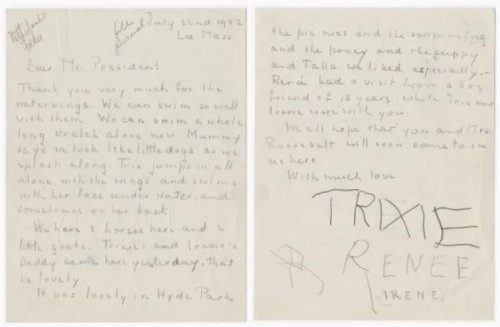 Netherlands
folder
file
personal
July 22nd 1942
Lee Mass.
Dear Mr. President
Thank you very much for the
waterwings. We can swim so well
with them. We can swim a whole
long stretch alone now. Mummy
says we look like little dogs as we
splash along. Trix jumps in all
alone, with the wings and swims
with her face under water, and
sometimes on her back.
We have 3 horses here and 2
little goats. Trixie's and Irenie's
Daddy came here yesterday, that
is lovely.
It was lovely in Hyde Park
the picnics and the swimming
and the poney and the puppy
and Falla we liked especially.
Renée had a visit from a boy
friend of 18 years while Trix and
Irene were with you.
We all hope that you and Mrs
Roosevelt will soon come to see
us here.
With much love
TRIXIE
RENEE
(IRENE)